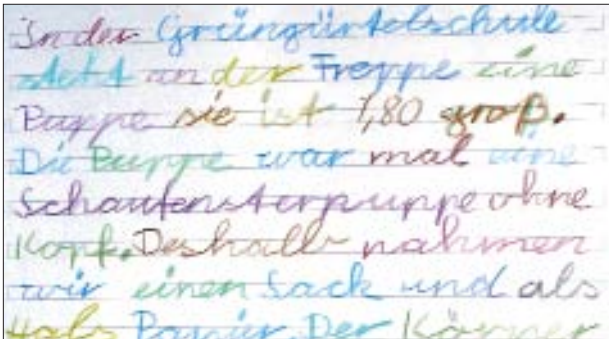 In der Grüngürtelschule
stett an der Treppe eine
Puppe sie ist 1,80 groß.
Die Puppe war mal eine
Schaufensterpuppe ohne
Kopf. Deshalb nahmen
wir einen Sack und als
Hals Papier. Der Körper